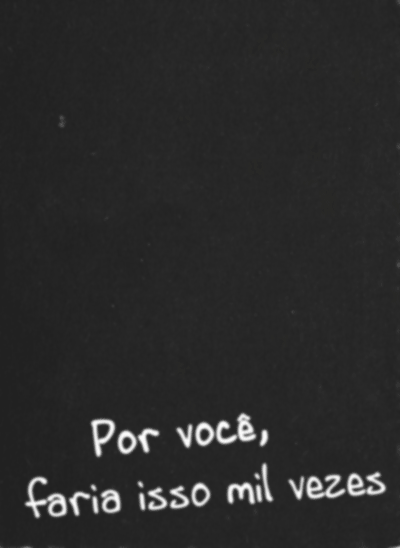 Por você,
faria isso mil vezes